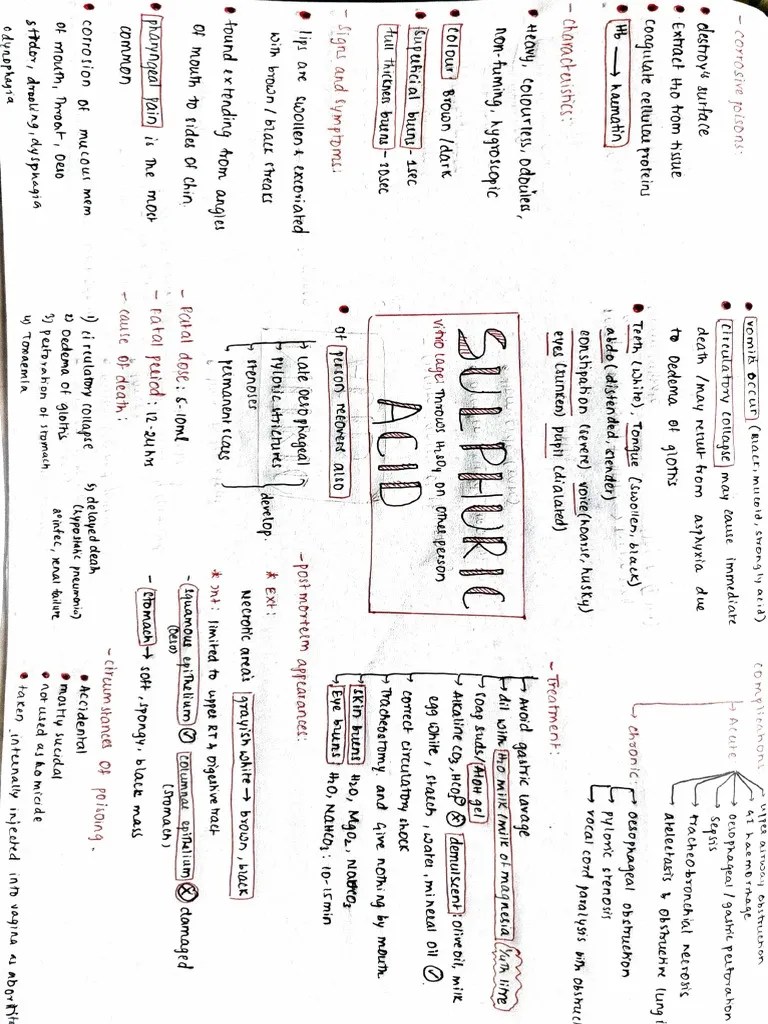 - corrosive poisons:
• destroy's surface
• Extract H2O from tissue
• coagulate cellular proteins
• Hb → haematin
- characteristics:
• Heavy, colourless, odourless,
non-fuming, hygroscopic
• colour: Brown/dark
• superficial burns - 1sec
• full thickness burns - 20sec
- Signs and symptoms:
• lips are swollen & excoriated
with brown/black streaks
• found extending from angles
of mouth to sides of chin.
• pharyngeal pain is the most
common
• corrosion of mucous mem
of mouth, Throat, Oeso
stridor, drooling, dysphagia
odynophagia
• vomits occur (Black, mucoid, strongly acid)
• circulatory collapse may cause immediate
death/may result from asphyxia due
to Oedema of glottis
• Teeth (white), Tongue (swollen, black)
abdo (distended, tender)
constipation (severe) voice (hoarse, husky)
eyes (sunken) pupil (dialated)
SULPHURIC
ACID
vitriolage: Throws H2SO4 on other person
• If person recovers also
→ late oesophageal
→ pyloric strictures
→ stenoses
→ permanent scars
develop.
- Fatal dose: 5-10ml
- Fatal period: 12-24hrs
- cause of death:
1) circulatory collapse
2) Oedema of glottis
3) perforation of stomach
4) Toxaemia
5) delayed death
(hypostatic pneumonia)
2° infec, renal failure
complications
→ Acute
upper airway obstruction
GI haemorrhage
oesophageal/gastric perforation
sepsis
tracheobronchial necrosis
atelectasis & obstructive lung
→ chronic:
→ oesophageal obstruction
→ pyloric stenosis
→ vocal cord paralysis with obstruc
- Treatment:
→ Avoid gastric lavage
→ dil with H2O milk/milk of magnesia 1/4th litre
→ soap suds/AlOH gel
→ Alkaline CO3, HCO3 ⊗ demulscent: olive oil, milk
egg white, starch, water, mineral oil
→ correct circulatory shock
→ Tracheostomy and Give nothing by mouth
→ skin burns H2O, MgO2, NaHCO3
→ Eye burns H2O, NaHCO3: 10-15min
- postmortem appearances:
* Ext:
Necrotic area's grayish white → brown, black
* Int: limited to upper RT & Digestive tract
- squamous epithelium columnar epithelium ⊗ damaged
(Oeso) (stomach)
- stomach → soft, spongy, black mass
- circumstances of poisoing.
• Accidental
• mostly sucidal
• not used as homicide
• taken internally injected into vagina as abortifa